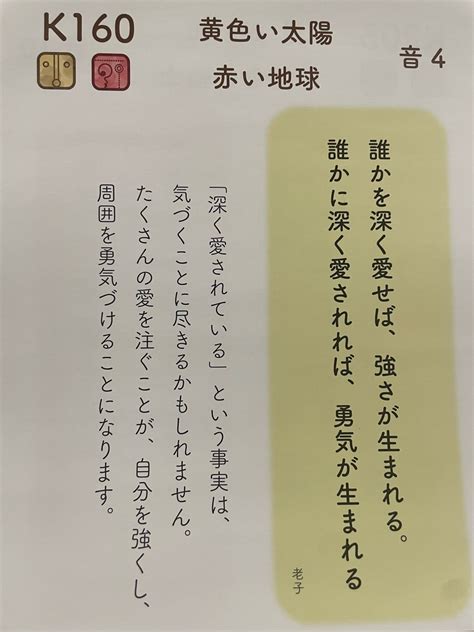 K160
黄色い太陽
赤い地球
音4
誰かを深く愛せば、強さが生まれる。
誰かに深く愛されれば、勇気が生まれる
老子
「深く愛されている」という事実は、
気づくことに尽きるかもしれません。
たくさんの愛を注ぐことが、自分を強くし、
周囲を勇気づけることになります。